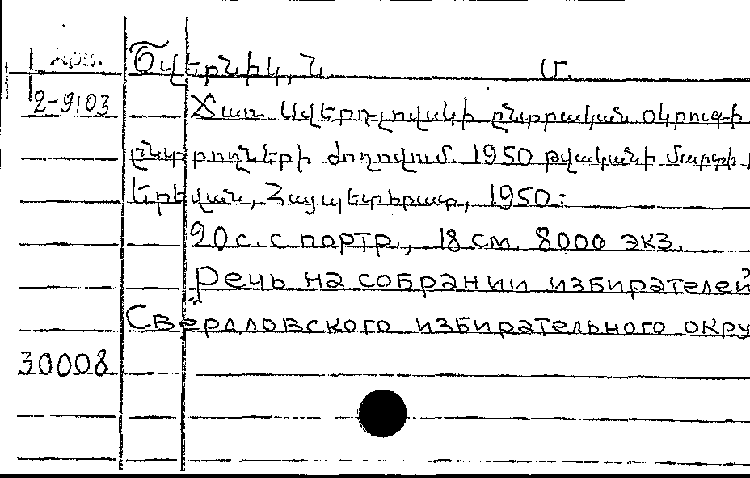 Арм.
Շվերնիկ, Ն. Մ.
2-9103
Ճառ Սվերդլովսկի ընտրական օկրուգի
ընտրողների ժողովում 1950 թվականի մարտի
Երևան, Հայպետհրատ, 1950:
20 с. с портр., 18 см. 8000 экз.
Речь на собрании избирателей
Свердловского избирательного окру
30008